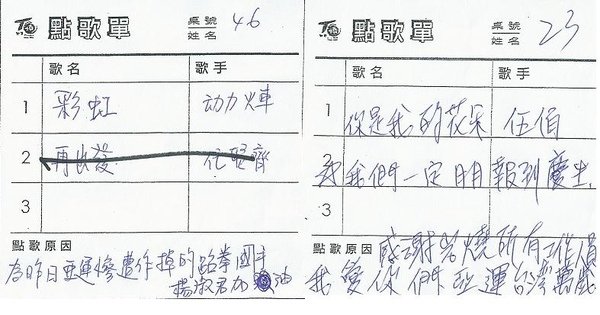 點歌單
桌號 46
姓名
歌名 歌手
1 彩虹 动力火車
2 再出發 任賢齊
3
點歌原因
為昨日亞運慘遭作掉的跆拳國手
楊淑君加油
點歌單
桌號 23
姓名
歌名 歌手
1 你是我的花朵 伍佰
2 我們一定日月報到慶生
3
點歌原因
感謝岩燒所有工作人員
我愛你們 亞運台灣萬歲